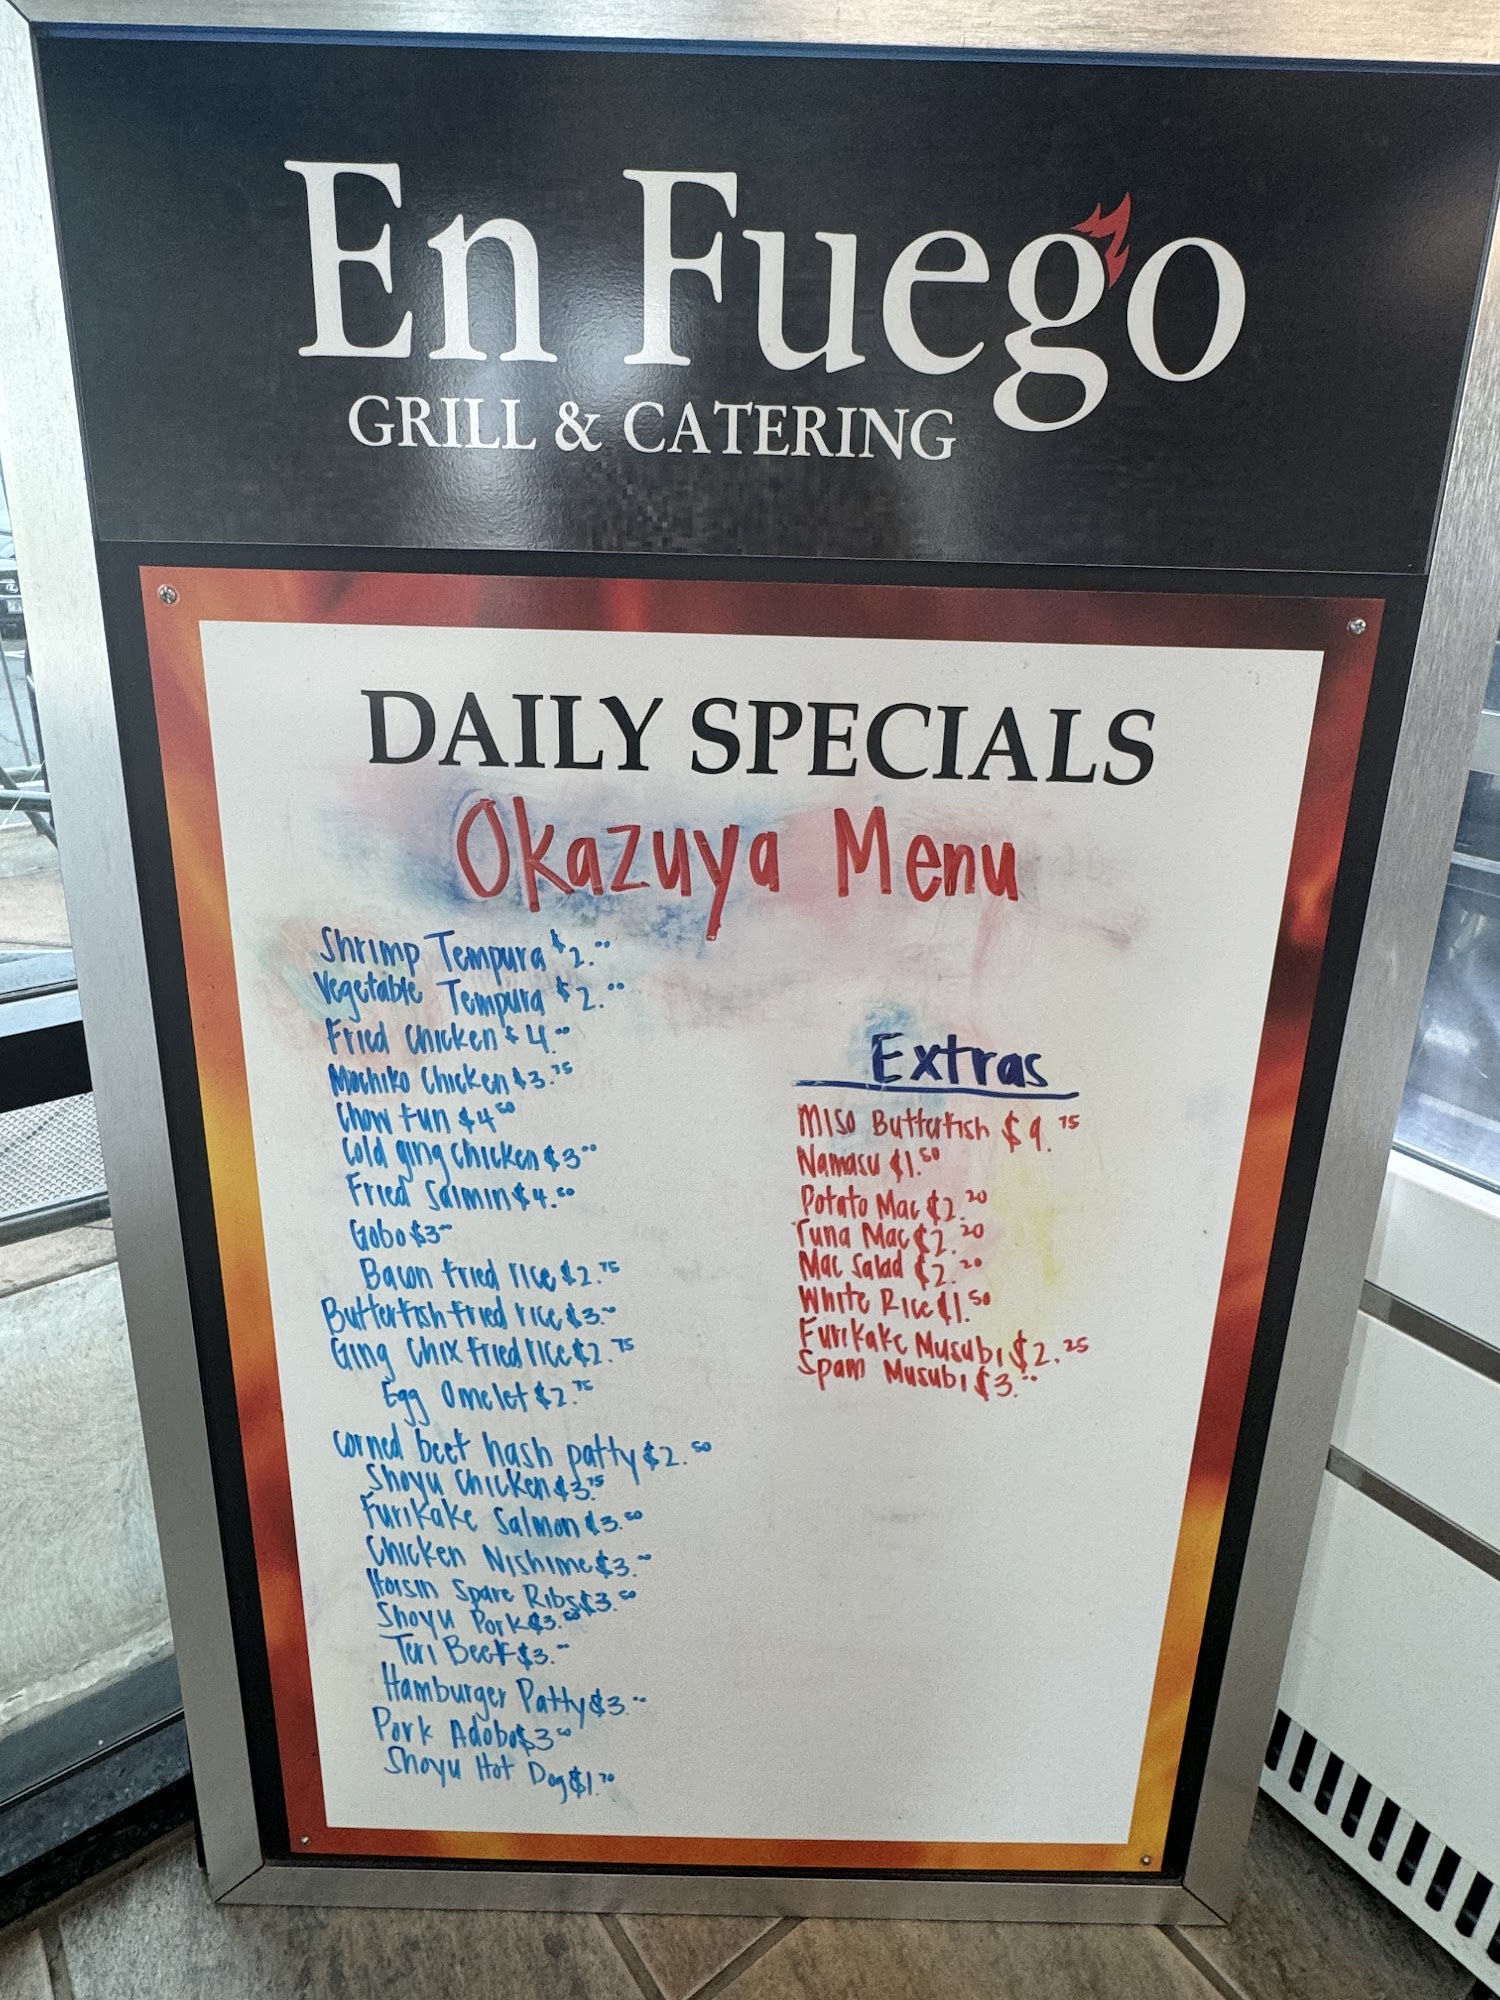 En Fuego
GRILL & CATERING
DAILY SPECIALS
Okazuya Menu
Shrimp Tempura $2.00
Vegetable Tempura $2.00
Fried Chicken $4.00
Mochiko Chicken $3.75
Chow Fun $4.50
Cold ging chicken $3.00
Fried Saimin $4.50
Gobo $3.00
Bacon fried rice $2.75
Butterfish fried rice $3.00
Ging Chix fried rice $2.75
Egg Omelet $2.75
corned beef hash patty $2.50
Shoyu Chicken $3.75
Furikake Salmon $3.50
Chicken Nishime $3.00
Hoisin Spare Ribs $3.50
Shoyu Pork $3.50
Teri Beef $3.00
Hamburger Patty $3.00
Pork Adobo $3.50
Shoyu Hot Dog $1.70
Extras
Miso Butterfish $9.75
Namasu $1.50
Potato Mac $2.20
Tuna Mac $2.20
Mac Salad $2.20
White Rice $1.50
Furikake Musubi $2.25
Spam Musubi $3.00